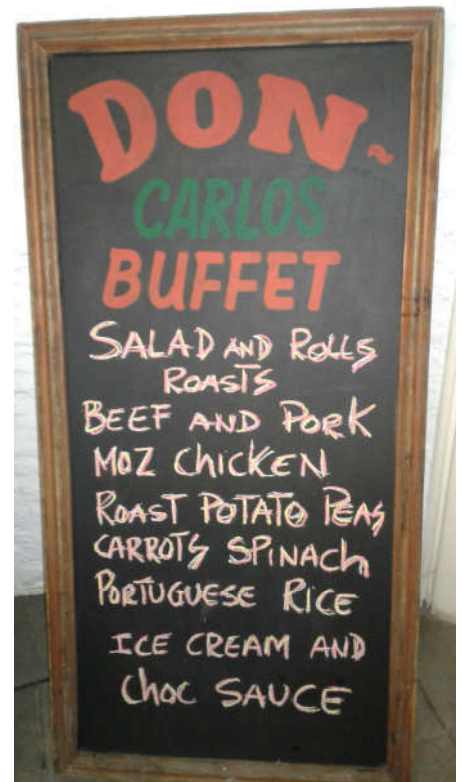 DON~
CARLOS
BUFFET
SALAD AND ROLLS
ROASTS
BEEF AND PORK
MOZ CHICKEN
ROAST POTATO PEAS
CARROTS SPINACH
PORTUGUESE RICE
ICE CREAM AND
CHOC SAUCE